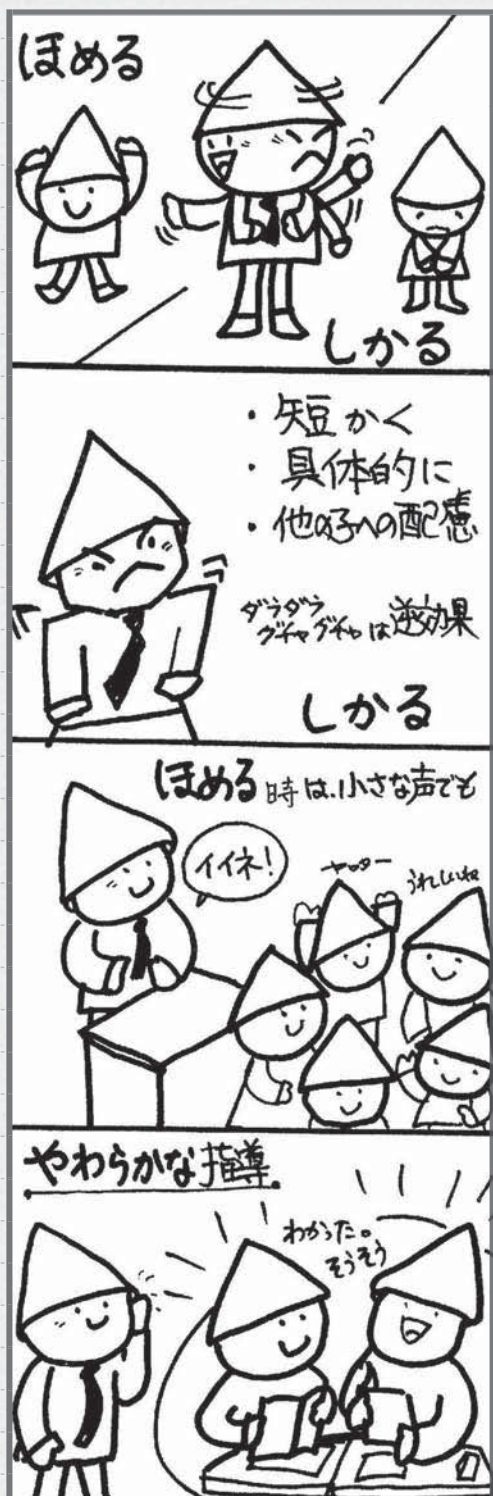 ほめる
しかる
・短かく
・具体的に
・他の子への配慮
ダラダラ
グチャグチャは逆効果
しかる
ほめる時は、小さな声でも
イイネ!
ヤッター
うれしいね
やわらかな指導。
わかった。
そうそう